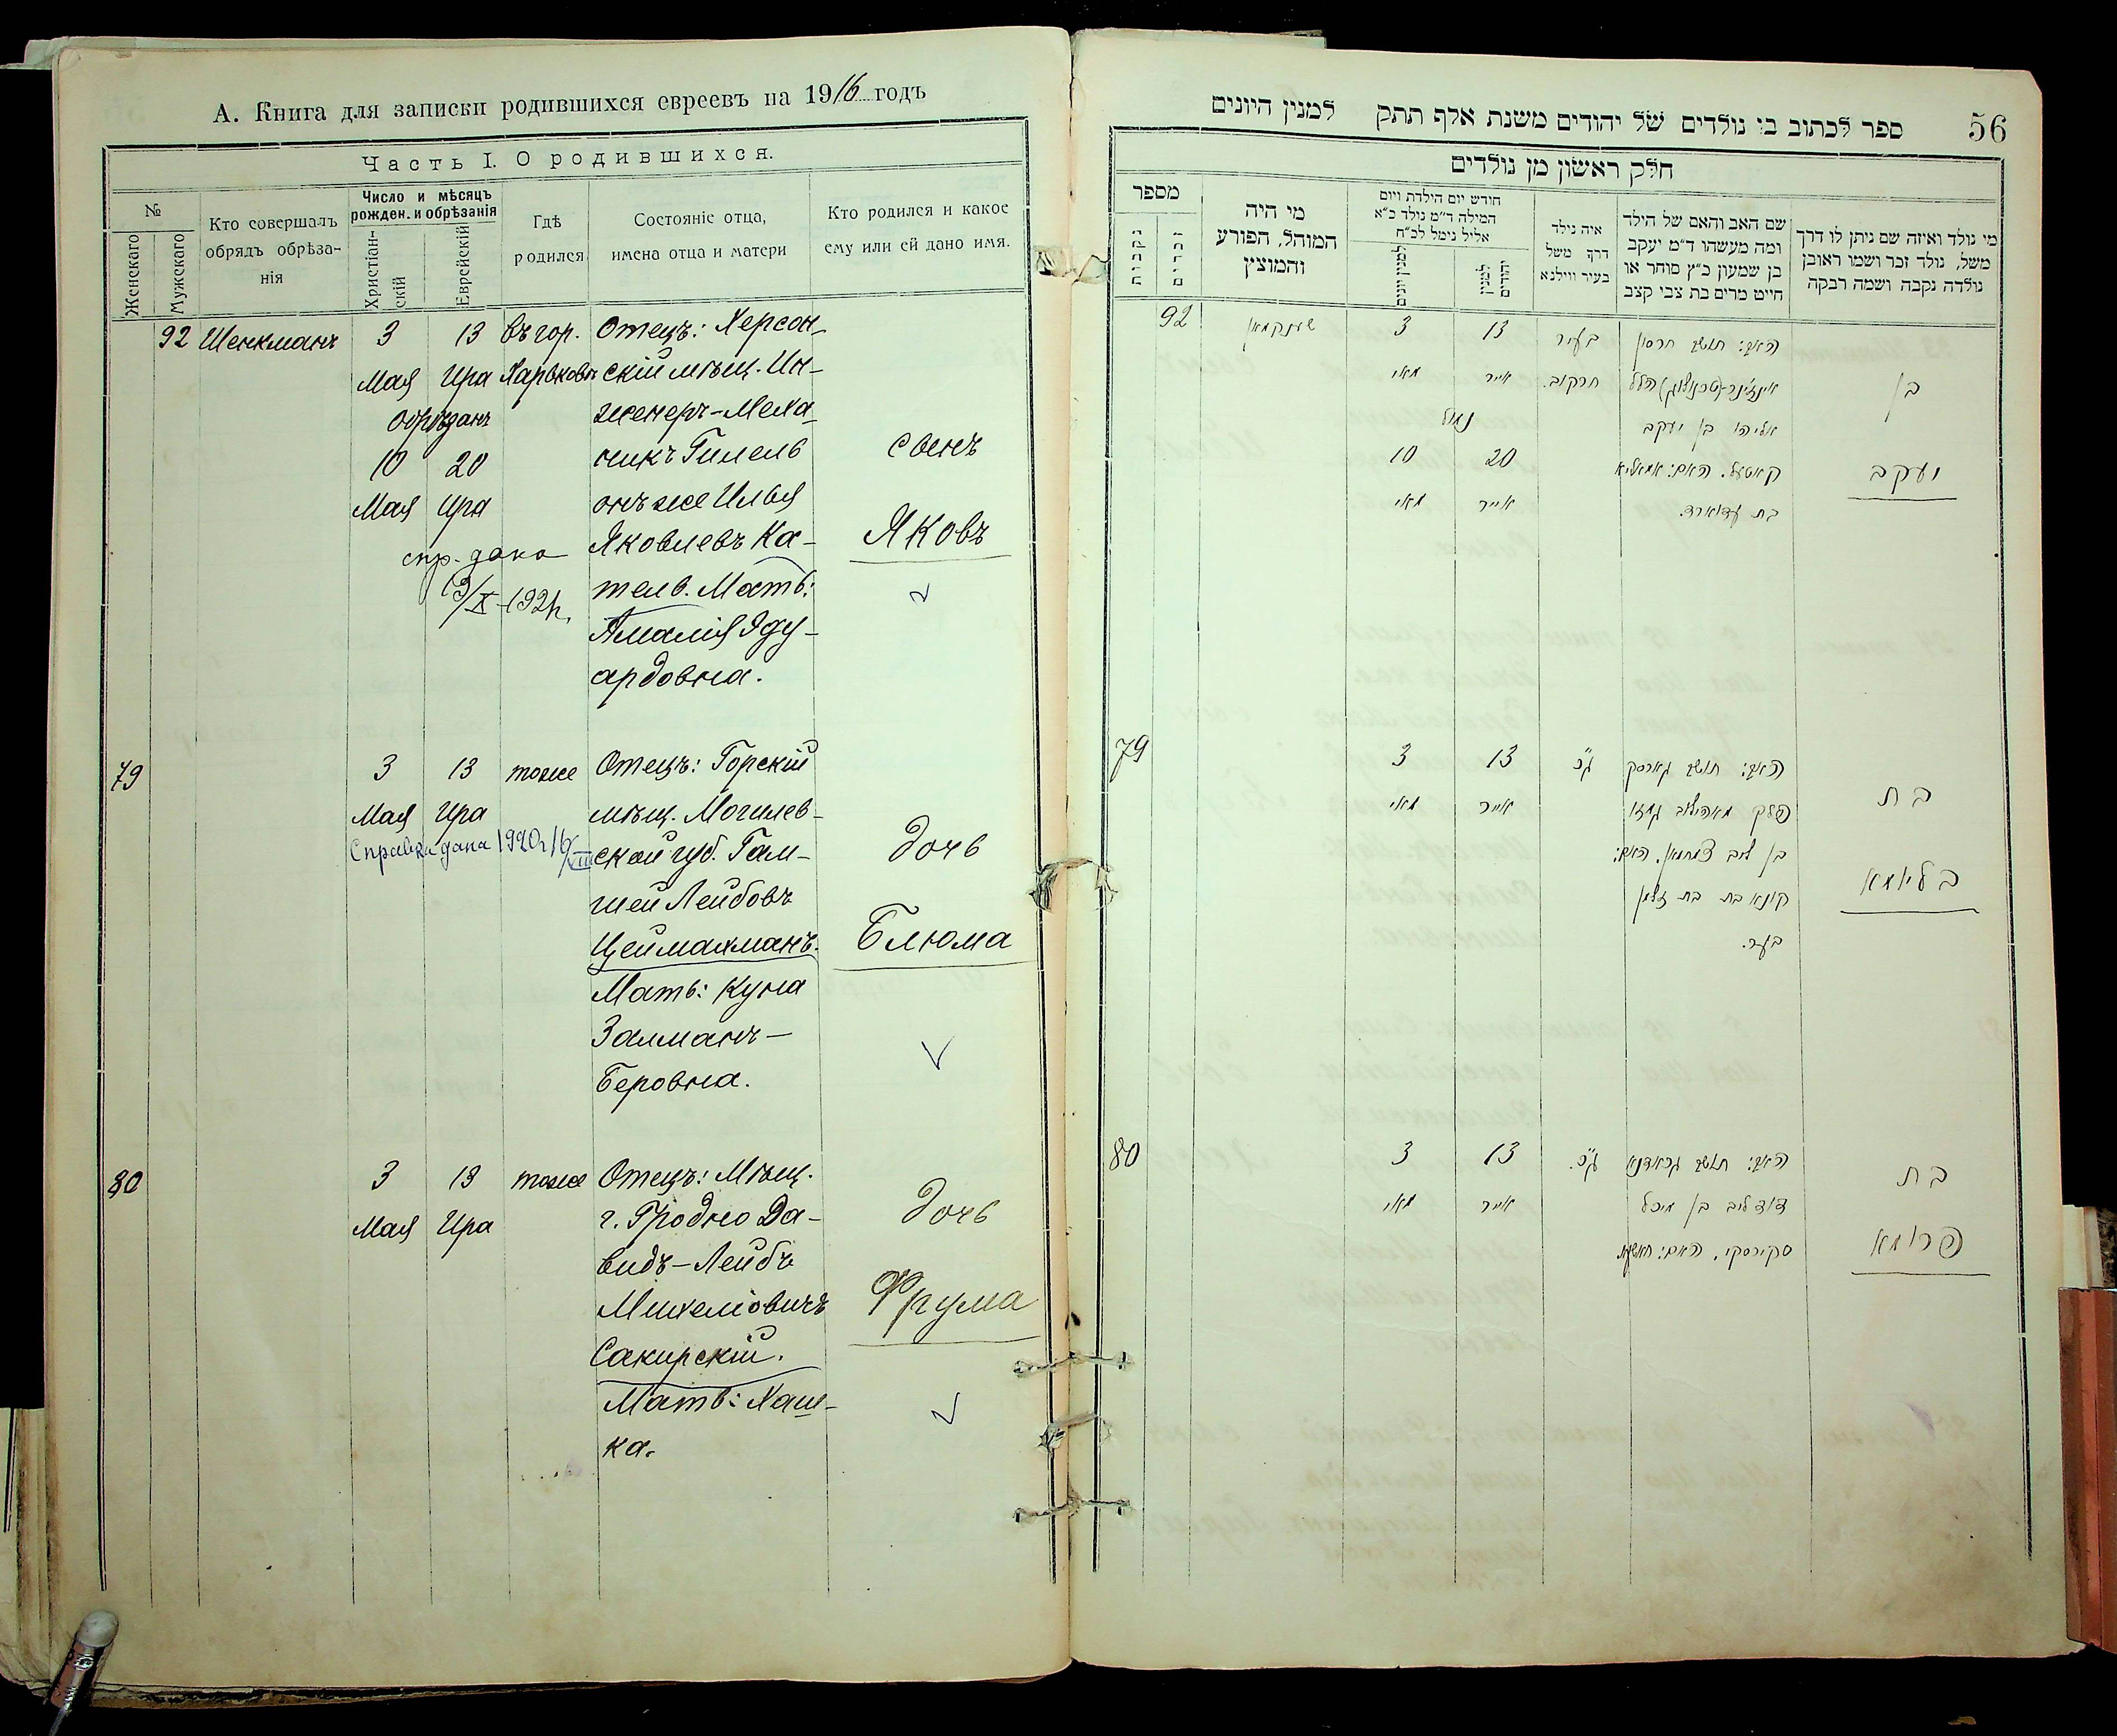 А. Книга для записки родившихся евреевъ на 1916 годъ
Часть I. О родившихся.
№
Женскаго
Мужскаго
Кто совершалъ
обрядъ обрѣза-
нія
Число и мѣсяцъ
рожден. и обрѣзанія
Христіан-
скій
Еврейскій
Гдѣ
родился
Состояніе отца,
имена отца и матери
Кто родился и какое
ему или ей дано имя.
92 Шенкманъ 3 13 въ гор. Отецъ: Херсон-
Мая Ира Харьковѣ скій мѣщ. Ин-
Обрѣзанъ женеръ-Меха-
10 20 никъ Гилель сынъ
Мая Ира онъ же Илья
спр. дана Яковлевъ Ка- Яковъ
тель. Мать:
Амалія Эду-
ардовна.
79 3 13 тоже Отецъ: Горскій
Мая Ира мѣщ. Могилев-
Справка дана 1920 г. 16/VIII ской губ. Гам- дочь
шей Лейбовъ
Цеймахманъ. Блюма
Мать: Куна
Залманъ-
Беровна.
80 3 13 тоже Отецъ: Мѣщ.
Мая Ира г. Гродно Да- дочь
видъ-Лейбъ
Михелiовичъ Фрума
Сакирскій.
Мать: Хаш-
ка.
56
ספר לכתוב בו נולדים של יהודים משנת אלף תתק למנין היונים
חלק ראשון מן נולדים
מי נולד ואיזה שם ניתן לו דרך
משל, נולד זכר ושמו ראובן
נולדה נקבה ושמה רבקה
שם האב והאם של הילד
ומה מעשהו ד״מ יעקב
בן שמעון כ״ץ סוחר או
חייט מרים בת צבי קצב
איה נולד
דרך משל
בעיר ווילנא
חודש יום הילדת ויום
המילה ד״מ נולד כ״א
אליל נימל לכ״ח
למנין יהודים
למנין יונים
מי היה
המוהל, הפורע
והמוצץ
מספר
זכרים
נקבות
האב: תושב חרסון בעיר 13 3 שענקמאן 92
בן הלל חרקוב. אייר מאי
אליהו בן יעקב נמול
יעקב קאטעל. האם: אמאליא 20 10
בת עדוארד. אייר מאי
האב: תושב גארסק ג״כ 13 3 79
בת פלך מאהילוב אייר מאי
בן ליב האם:
בליומא בת זלמן
בער.
האב: תושב גראדנא ג״כ. 13 3 80
בת דוד ליב בן מיכל אייר מאי
פרומא סקירסקי. האם: חאשקע